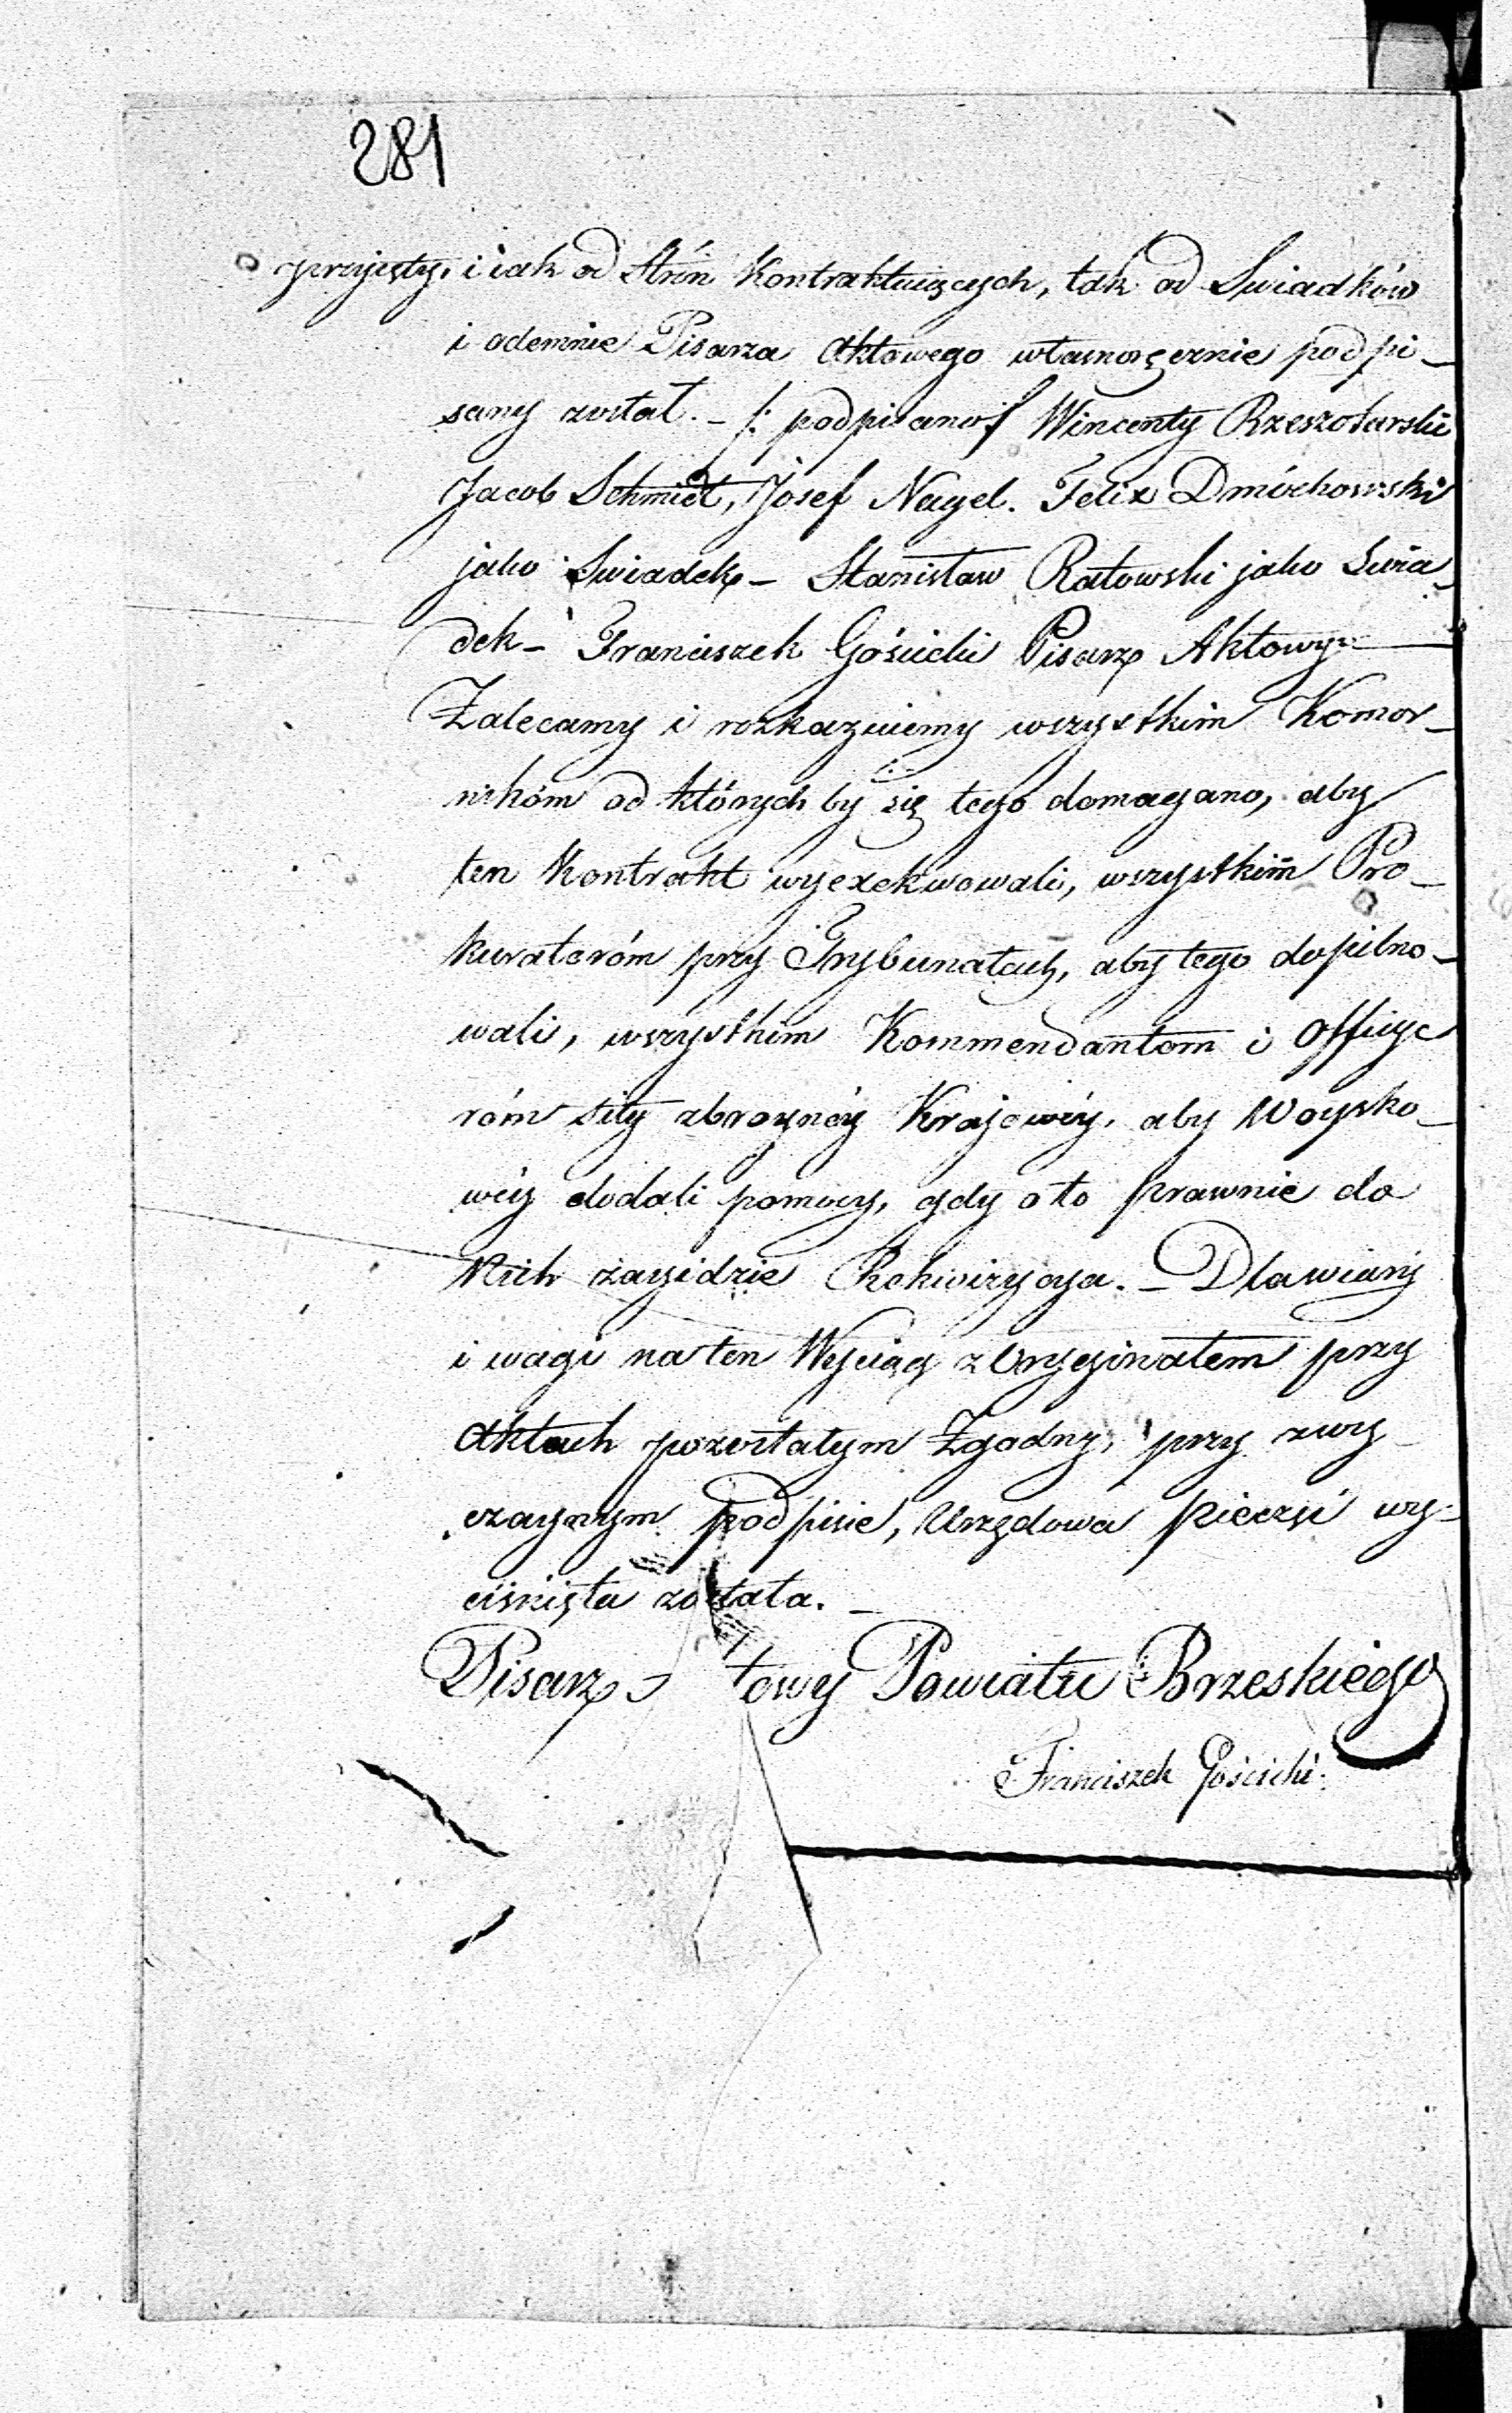 281
przyjęty, i iak od Strón Kontraktuiących, tak od Swiadków
i odemnie Pisarza Aktowego własnoręcznie podpi-
sany został. - /: podpisano :/ Wincenty Rzeszotarski
Jacob Schmidt, Josef Nagel. Felix Dmóchowski
jako Swiadek - Stanisław Ratowski jako Swia-
dek - Franciszek Gościcki Pisarz Aktowy. -
Zalecamy i rozkazuiemy wszystkim Komor-
nikóm od których by się tego domagano, aby
ten Kontrakt wyexekwowali, wszystkim Pro-
kuratoróm przy Trybunałach, aby tego dopilno-
wali, wszystkim Kommendantom i Officye
róm siły zbroynéy Krajowéy, aby Woysko-
wéy dodali pomocy, gdy o to prawnie do
Nich zayidzie Rekwizycya. - Dla wiary
i wagi na ten Wyciąg z Oryginałem przy
Aktach pozostałym Zgodny, przy zwy-
czaynym podpisie, Urzędowa pieczęć wy-
ciśnięta została. -
Pisarz towy Powiatu Brzeskiego
Franciszek Gościcki.